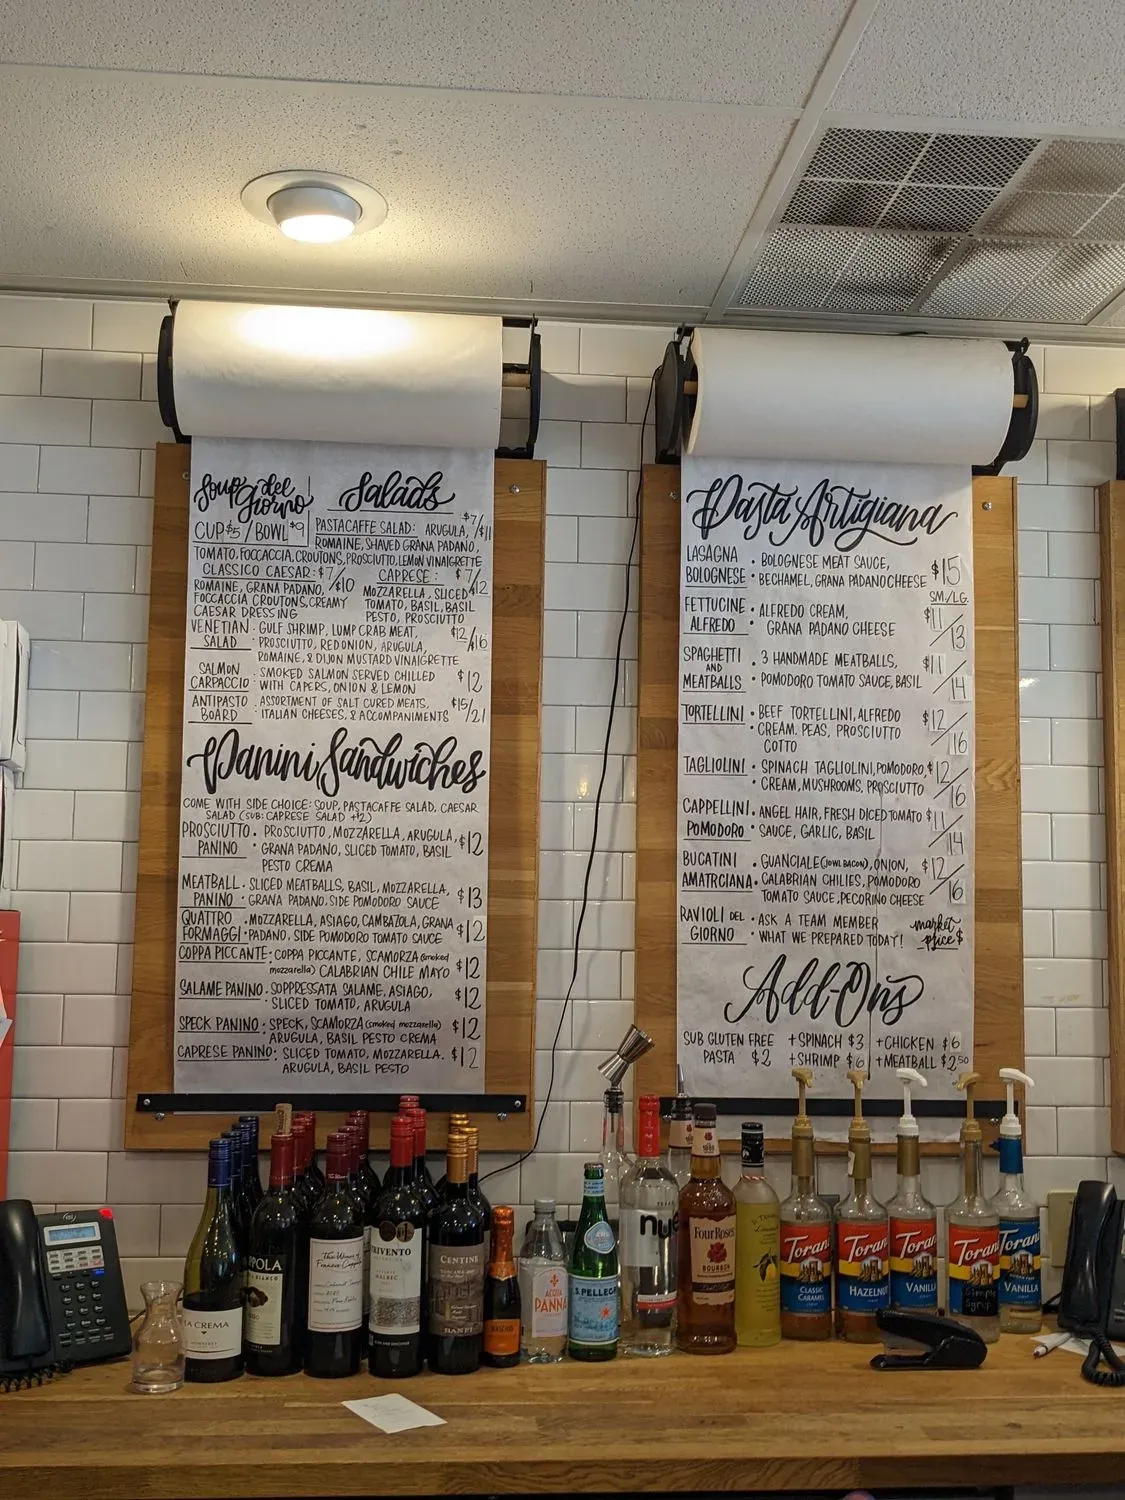 Soup del giorno!
CUP $5 / BOWL $9
Salads
PASTACAFFE SALAD: ARUGULA, $7/$11
ROMAINE, SHAVED GRANA PADANO,
TOMATO, FOCCACCIA, CROUTONS, PROSCIUTTO, LEMON VINAIGRETTE
CLASSICO CAESAR: $7/$10
ROMAINE, GRANA PADANO,
FOCCACCIA CROUTONS, CREAMY
CAESAR DRESSING
CAPRESE: $7/12
MOZZARELLA, SLICED
TOMATO, BASIL, BASIL
PESTO, PROSCIUTTO
VENETIAN • GULF SHRIMP, LUMP CRAB MEAT, $12/$16
SALAD • PROSCIUTTO, RED ONION, ARUGULA,
ROMAINE, & DIJON MUSTARD VINAIGRETTE
SALMON • SMOKED SALMON SERVED CHILLED $12
CARPACCIO • WITH CAPERS, ONION & LEMON
ANTIPASTO • ASSORTMENT OF SALT CURED MEATS, $15/21
BOARD • ITALIAN CHEESES, & ACCOMPANIMENTS
Panini Sandwiches
COME WITH SIDE CHOICE: SOUP, PASTACAFFE SALAD, CAESAR
SALAD (SUB: CAPRESE SALAD +$2)
PROSCIUTTO • PROSCIUTTO, MOZZARELLA, ARUGULA, $12
PANINO • GRANA PADANO, SLICED TOMATO, BASIL
PESTO CREMA
MEATBALL • SLICED MEATBALLS, BASIL, MOZZARELLA, $13
PANINO • GRANA PADANO, SIDE POMODORO SAUCE
QUATTRO • MOZZARELLA, ASIAGO, CAMBAZOLA, GRANA $12
FORMAGGI • PADANO, SIDE POMODORO TOMATO SAUCE
COPPA PICCANTE: COPPA PICCANTE, SCAMORZA (smoked $12
mozzarella) CALABRIAN CHILE MAYO
SALAME PANINO • SOPPRESSATA SALAME, ASIAGO, $12
• SLICED TOMATO, ARUGULA
SPECK PANINO: SPECK, SCAMORZA (smoked mozzarella) $12
ARUGULA, BASIL PESTO CREMA
CAPRESE PANINO: SLICED TOMATO, MOZZARELLA. $12
ARUGULA, BASIL PESTO
Pasta Artigiana
LASAGNA • BOLOGNESE MEAT SAUCE, $15
BOLOGNESE • BECHAMEL, GRANA PADANO CHEESE
SM./LG.
FETTUCINE • ALFREDO CREAM, $11/13
ALFREDO • GRANA PADANO CHEESE
SPAGHETTI • 3 HANDMADE MEATBALLS, $11/14
AND
MEATBALLS • POMODORO TOMATO SAUCE, BASIL
TORTELLINI • BEEF TORTELLINI, ALFREDO $12/16
• CREAM. PEAS, PROSCIUTTO
COTTO
TAGLIOLINI • SPINACH TAGLIOLINI, POMODORO, $12/16
• CREAM, MUSHROOMS, PROSCIUTTO
CAPPELLINI • ANGEL HAIR, FRESH DICED TOMATO $11/14
POMODORO • SAUCE, GARLIC, BASIL
BUCATINI • GUANCIALE (JOWL BACON), ONION, $12/16
AMATRCIANA • CALABRIAN CHILIES, POMODORO
TOMATO SAUCE, PECORINO CHEESE
RAVIOLI DEL • ASK A TEAM MEMBER market
GIORNO • WHAT WE PREPARED TODAY! price $
Add-Ons
SUB GLUTEN FREE +SPINACH $3 +CHICKEN $6
PASTA $2 +SHRIMP $6 +MEATBALL $2.50
LA CREMA
The Wines of
Francis Coppola
TRIVENTO
MALBEC
CENTINE
BANFI
ACQUA
PANNA
S.PELLEGRINO
Four Roses
BOURBON
Torani
CLASSIC
CARAMEL
Torani
HAZELNUT
Torani
VANILLA
Torani
Simple
Syrup
Torani
VANILLA